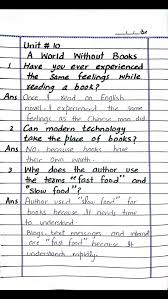 Unit # 10
A World Without Books
1 Have you ever experienced
the same feelings while
reading a book?
Ans Once I read an English
novel. I experienced the same
feelings as the Chinese man did.
2 Can modern technology
take the place of books?
Ans No, because books have
their own worth.
3 Why does the author use
the terms "fast food" and
"Slow food"?
Ans Author used "slow food" for
books because it needs time
to understand.
Blogs, text messages and internet
are "fast food" because it
understands rapidly.